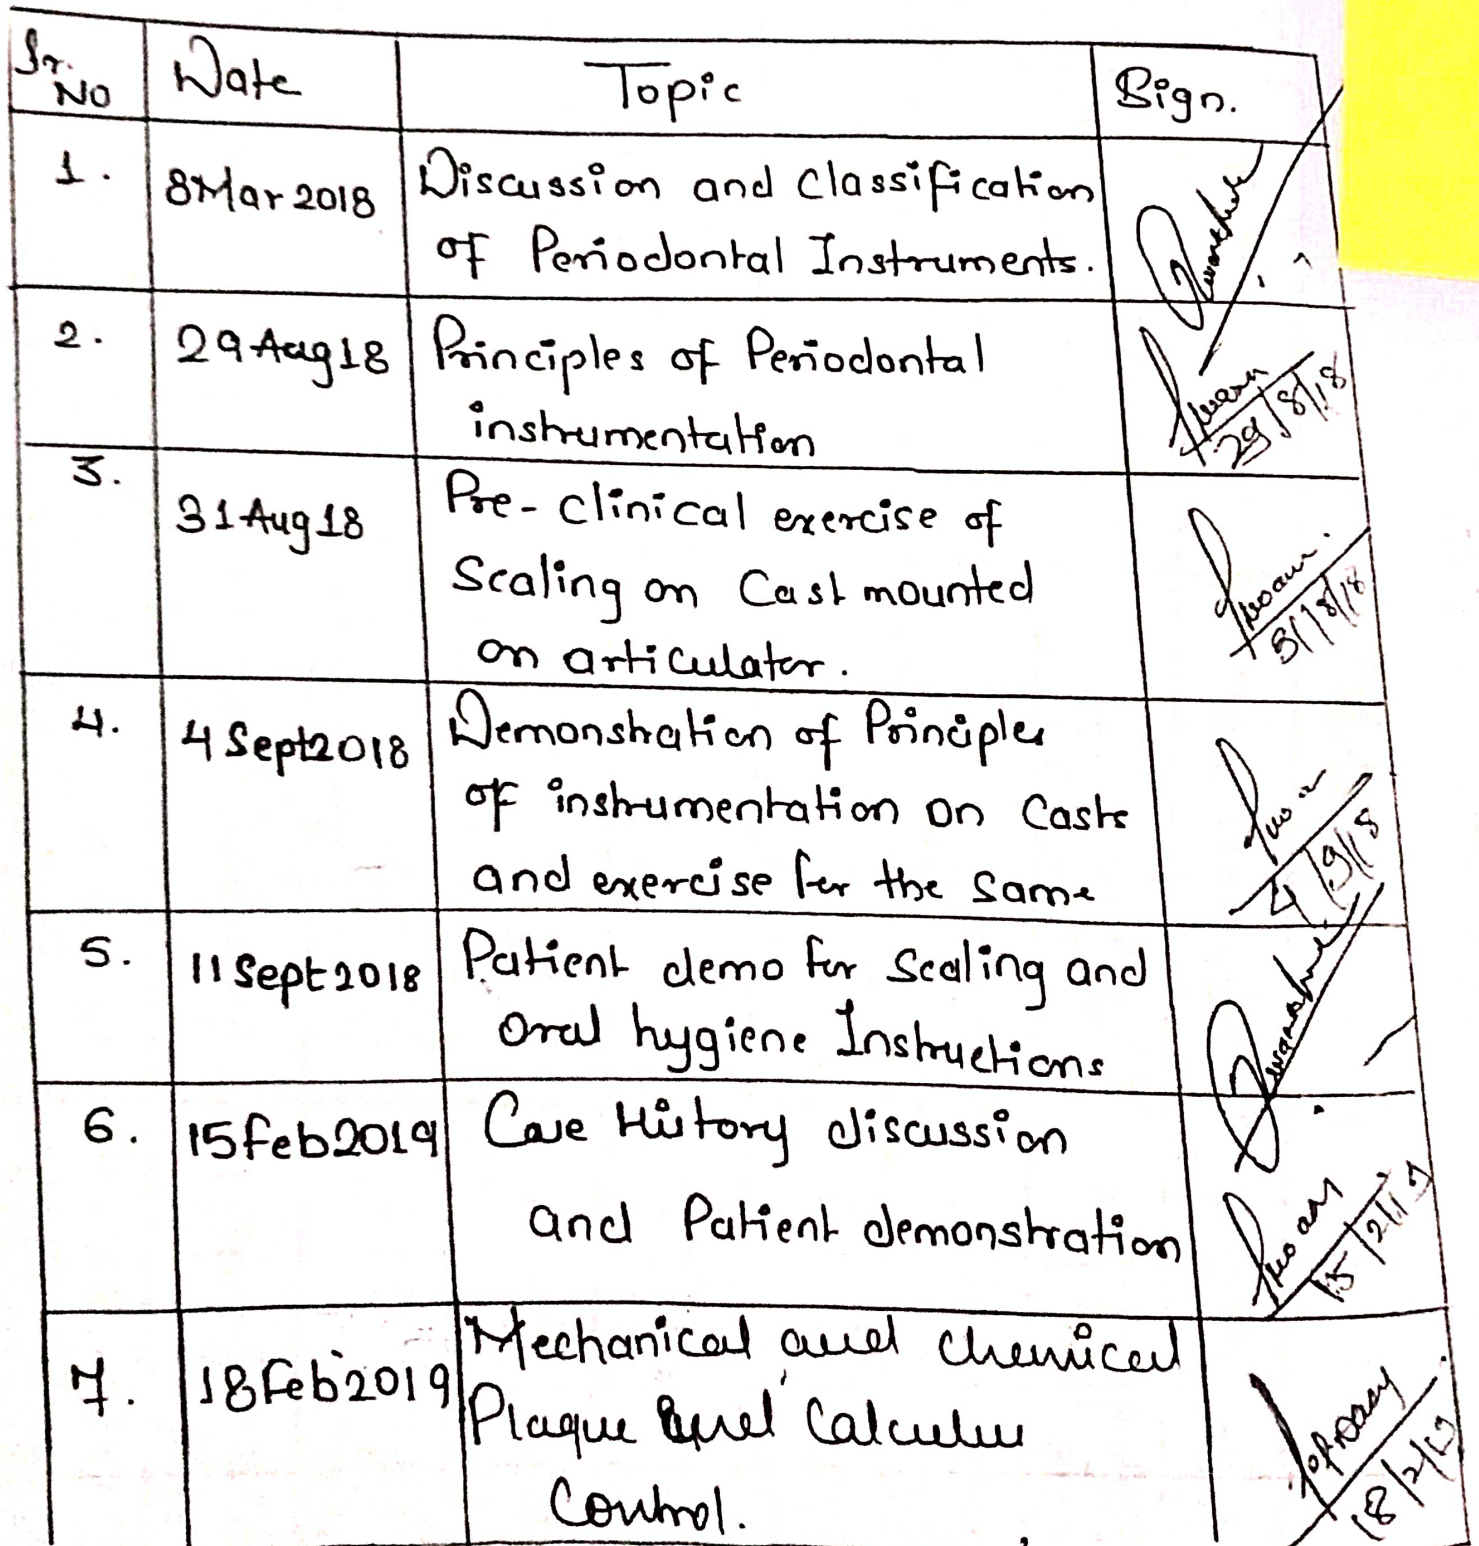 Sr. No Date Topic Sign.
1. 8 Mar 2018 Discussion and Classification
of Periodontal Instruments.
2. 29 Aug 18 Principles of Periodontal
instrumentation
29/8/18
3. 31 Aug 18 Pre-clinical exercise of
Scaling on Cast mounted
on articulator.
31/8/18
4. 4 Sept 2018 Demonstration of Principles
of instrumentation on Casts
and exercise for the Same
4/9/18
5. 11 Sept 2018 Patient demo for Scaling and
Oral hygiene Instructions
6. 15 Feb 2019 Case History discussion
and Patient demonstration
15/2/19
7. 18 Feb 2019 Mechanical and chemical
Plaque and Calculus
Control.
18/2/19